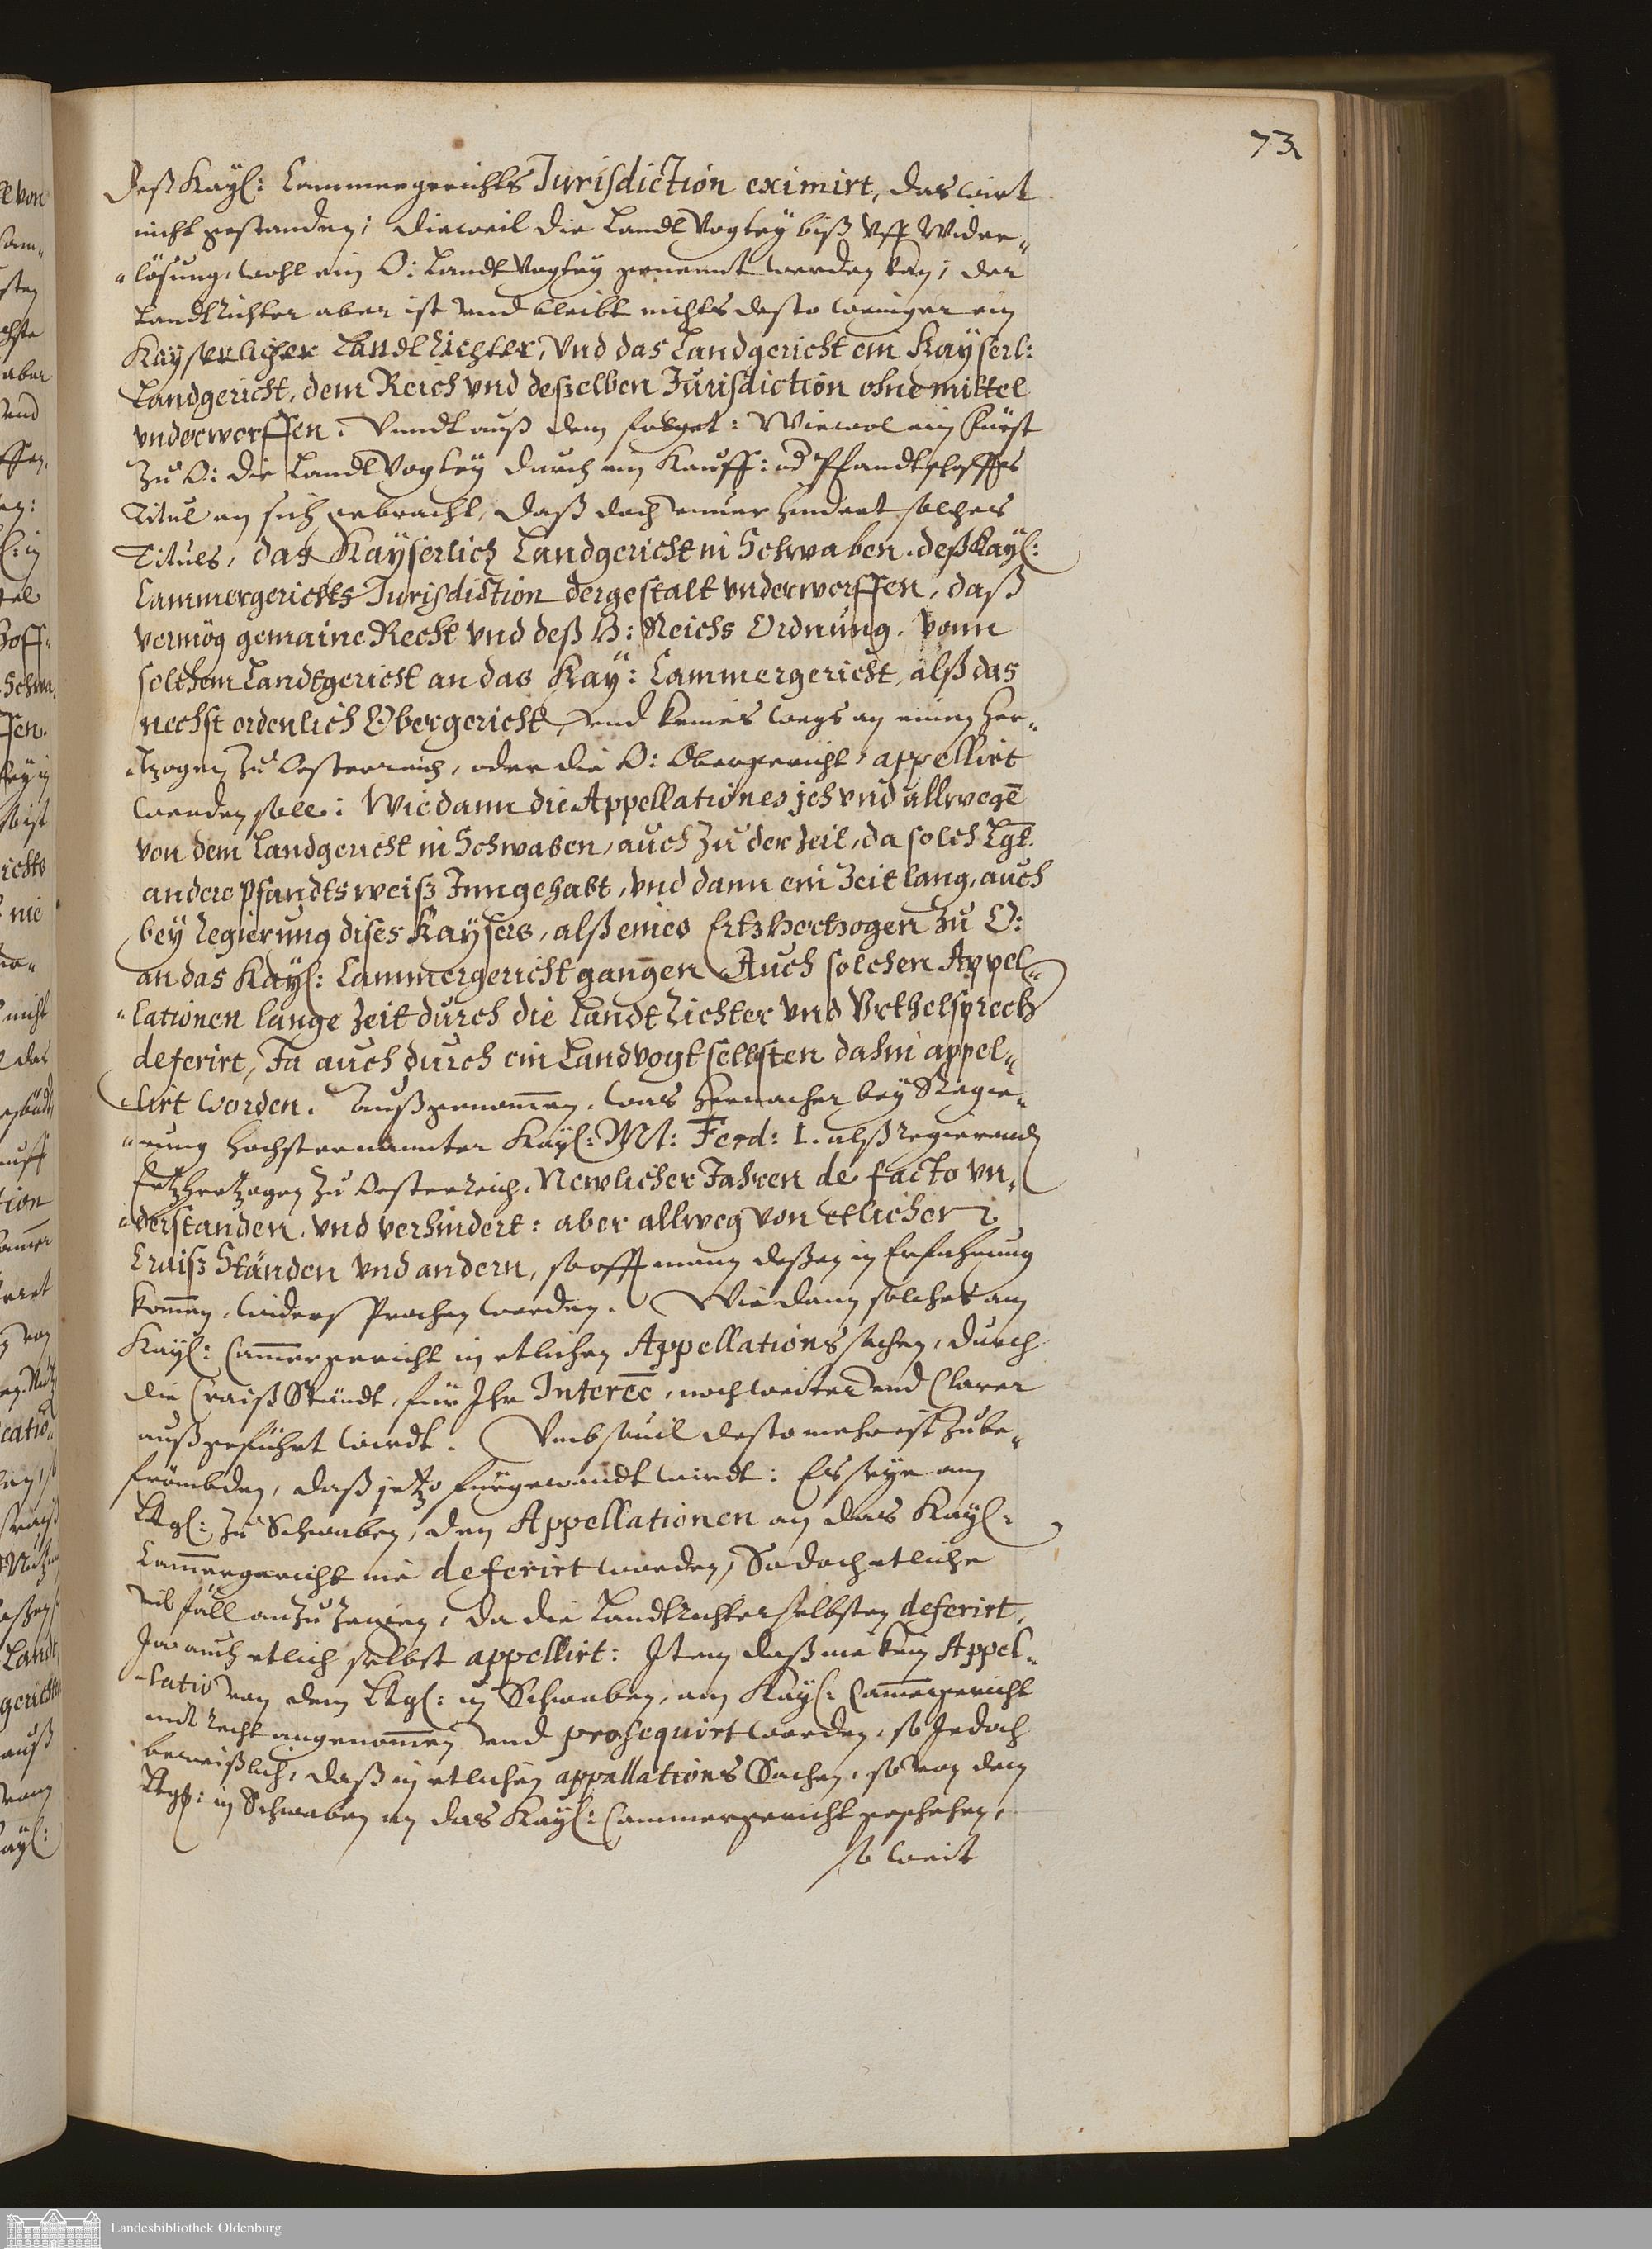 73
deß Kayl: Cammergerichts Jurisdiction eximirt, das wirt
nicht gestanden; dieweil die Landt Vogtey biß vff Wider„
„lösung, wohl ein O: Landt Vogtey genennt werden kan; der
Landtrichter aber ist vnd bleibt nichts desto weniger ein
Kayserlicher Landtrichter, vnd das Landgericht ein Kayserl:
Landgericht, dem Reich vnd deßelben Jurisdiction ohne mittel
vnderworffen. Vnndt auß dem folget: Wiewol ein Fürst
zu O: die Landt Vogtey durch ein Kauff: od Pfandtschaffts
Titul an sich gebracht, daß doch vnuerhindert solches
Tituls, das Kayserlich Landgericht in Schwaben. deß Kayl:
Cammergerichts Jurisdiction dergestalt vnderworffen, daß
vermög gemaine Recht vnd deß H: Reichs Ordnung. vonn
solchem Landtgericht an das Kay: Cammergericht, alß das
nechst ordenlich Obergericht, vnd keines wegs an einen Her„
„tzogen zu Oesterreich, oder die O: Obergericht, appellirt
werden solle: Wie dann die Appellationes jeh vnd allwegē
von dem Landgericht in Schwaben, auch zu der Zeit, da solch Lgt.
andere Pfandtsweiß Inngehabt, vnd dann ein Zeit lang, auch
bey regierung dises Kaysers, alß eines Ertzhertzogen zu O:
an das Kayl: Cammergericht gangen Auch solchen Appel„
„lationen lange Zeit durch die Landtrichter vnd Vrthelsprech
deferirt, Ja auch durch ein Landvogt selbsten dahin appel„
„lirt worden. Außgenom̄en. was hernacher bey Regie„
„rung Hochsternannter Kayl: Mt: Ferd: I. alß regierendē
Ertzhertzogen zu Oesterreich, Newlicher Jahren de facto vn„
„derstanden, vnd verhindert: aber allweg von etlichen
Craiß Ständen vnd andern, so offt mann deßen in Erfahrung
kom̄en, widersprochen worden. Wie dann solches am
Kayl: Cam̄ergericht in etlichen Appellations sachen, durch
die Craiß Ständt, für Ihr Intereē, noch weiter vnd Clarer
außgeführt wirdt. Vmb souil desto mehr ist zu be„
frömbden, daß jetzo fürgewandt wirdt: Es seye am
Ltgl: zu Schwaben, den Appellationen an das Kayl:
Cam̄ergericht nie deferirt worden, So doch etliche
vil fäll anzuzeigen, da die Landtrichter selbsten deferirt,
Ja auch etlich selbst appellirt: Item daß nie kein Appel„
„latio von dem Ltgl: in Schwaben, am Kayl: Cam̄ergericht
mit recht angenom̄en vnd prosequirt worden, so Jedoch
beweißlich, daß in etlichen appellations Sachen, so von dem
Ltgl: in Schwaben an das Kayl: Cammergericht geschehen,
so weit
Landesbibliothek Oldenburg